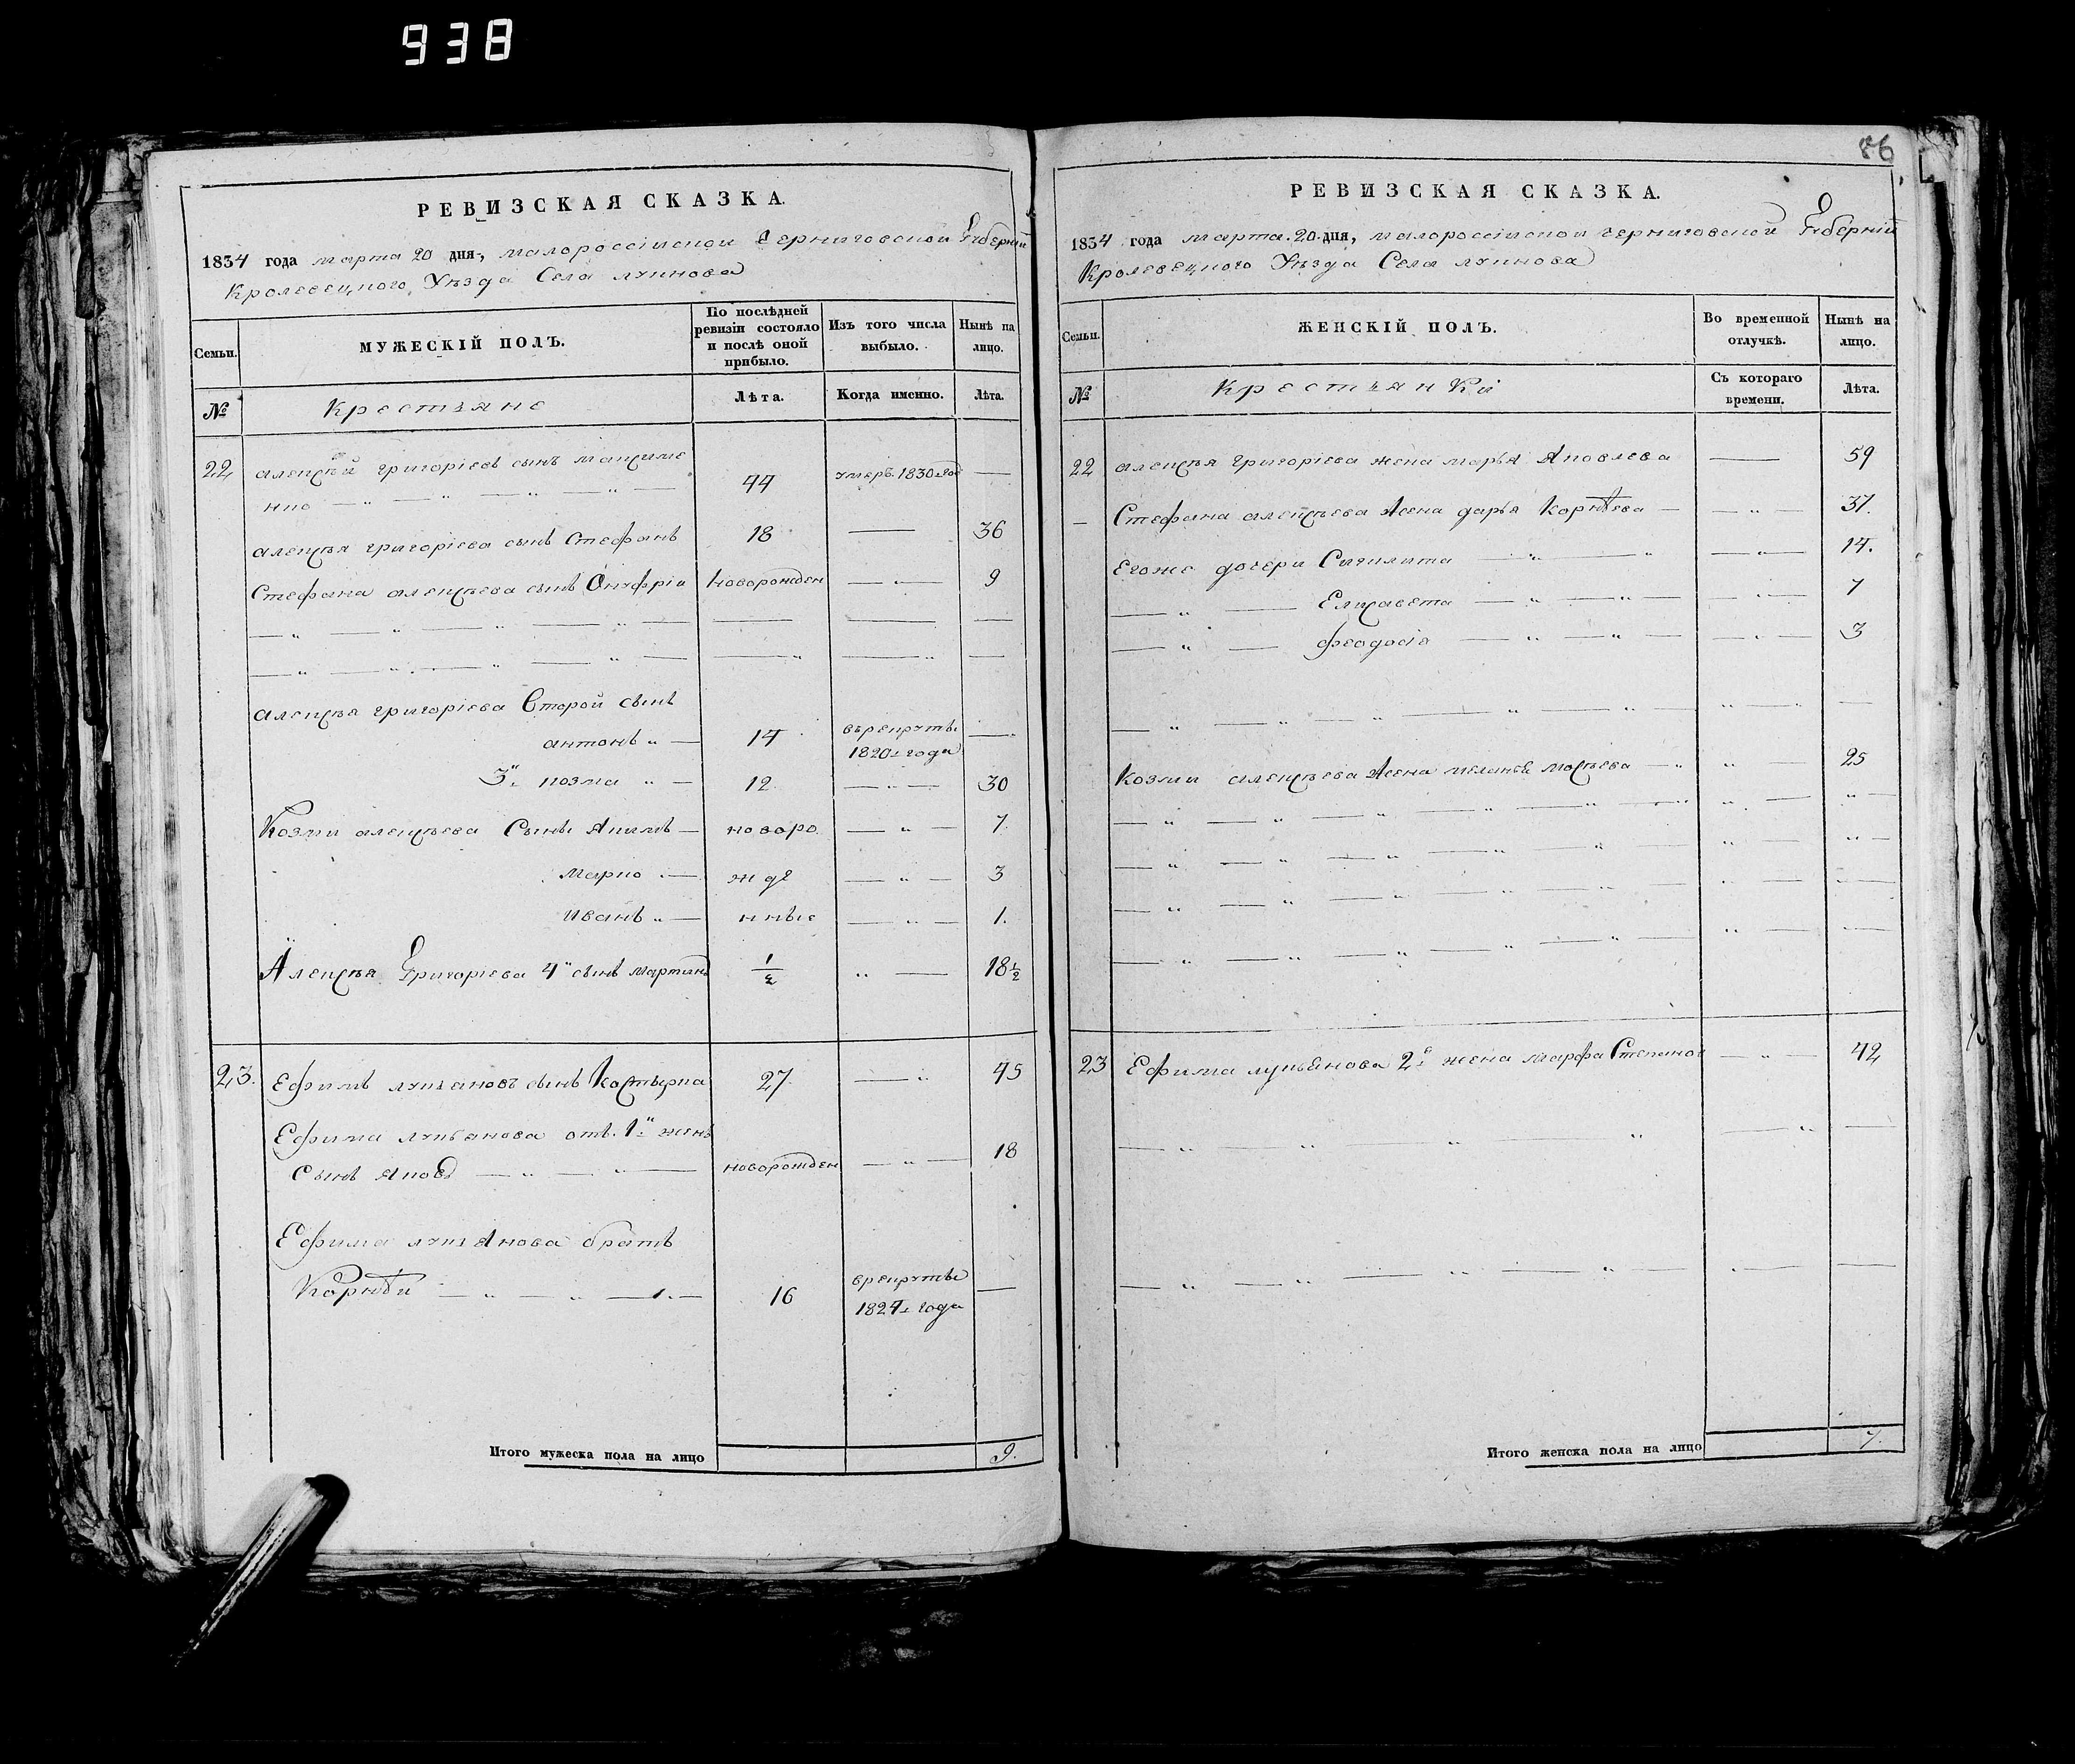 938
86
РЕВИЗСКАЯ СКАЗКА.
1834 года марта 20 дня, малороссійской Черниговской Губерніи
Кролевецкого Уѣзда Села лукнова
Семьи.
МУЖЕСКІЙ ПОЛЪ.
По послѣдней ревизіи состояло и послѣ оной прибыло.
Изъ того числа выбыло.
Нынѣ на лицо.
№
Крестьяне
Лѣта.
Когда именно.
Лѣта.
22 алексѣй григоріевъ сынъ максиме
нко 44 умеръ 1830 год
алексѣя григоріева сынъ Стефанъ 18 36
Стефана алексѣева сынъ Онуфріи новорожден 9
алексѣя григоріева второй сынъ
антонъ 14 въ рекруты 1820 года
3й козма 12 30
Козми алексѣева Сынъ Якимъ новоро 7
марко жде 3
иванъ нные 1.
Алексѣя Григоріева 4й сынъ мартинъ 1/2 18 1/2
23. Ефимъ лукяновъ сынъ Костырка 27 45
Ефима лукьянова отъ 1й жены
Сынъ яковъ новорожден 18
Ефима лукьянова братъ
Корнѣи 16 в рекруты 1824 года
Итого мужеска пола на лицо 9.
РЕВИЗСКАЯ СКАЗКА.
1834 года марта 20 дня, малороссійской черниговской Губерніи
Кролевецкого Уѣзда Села лукнова
Семьи.
ЖЕНСКІЙ ПОЛЪ.
Во временной отлучкѣ.
Нынѣ на лицо.
№
Крестьянки
Съ котораго времени.
Лѣта.
22 алексѣя григоріева жена марья Яковлева 59
Стефана алексѣева жена дарья Корнѣева 37.
Егоже дочери 14.
Елисавета 7
феодосія 3
Козми алексѣева жена меланья мосѣева 25
23 Ефима лукьянова 2я жена марфа Степанов 42
Итого женска пола на лицо 7.